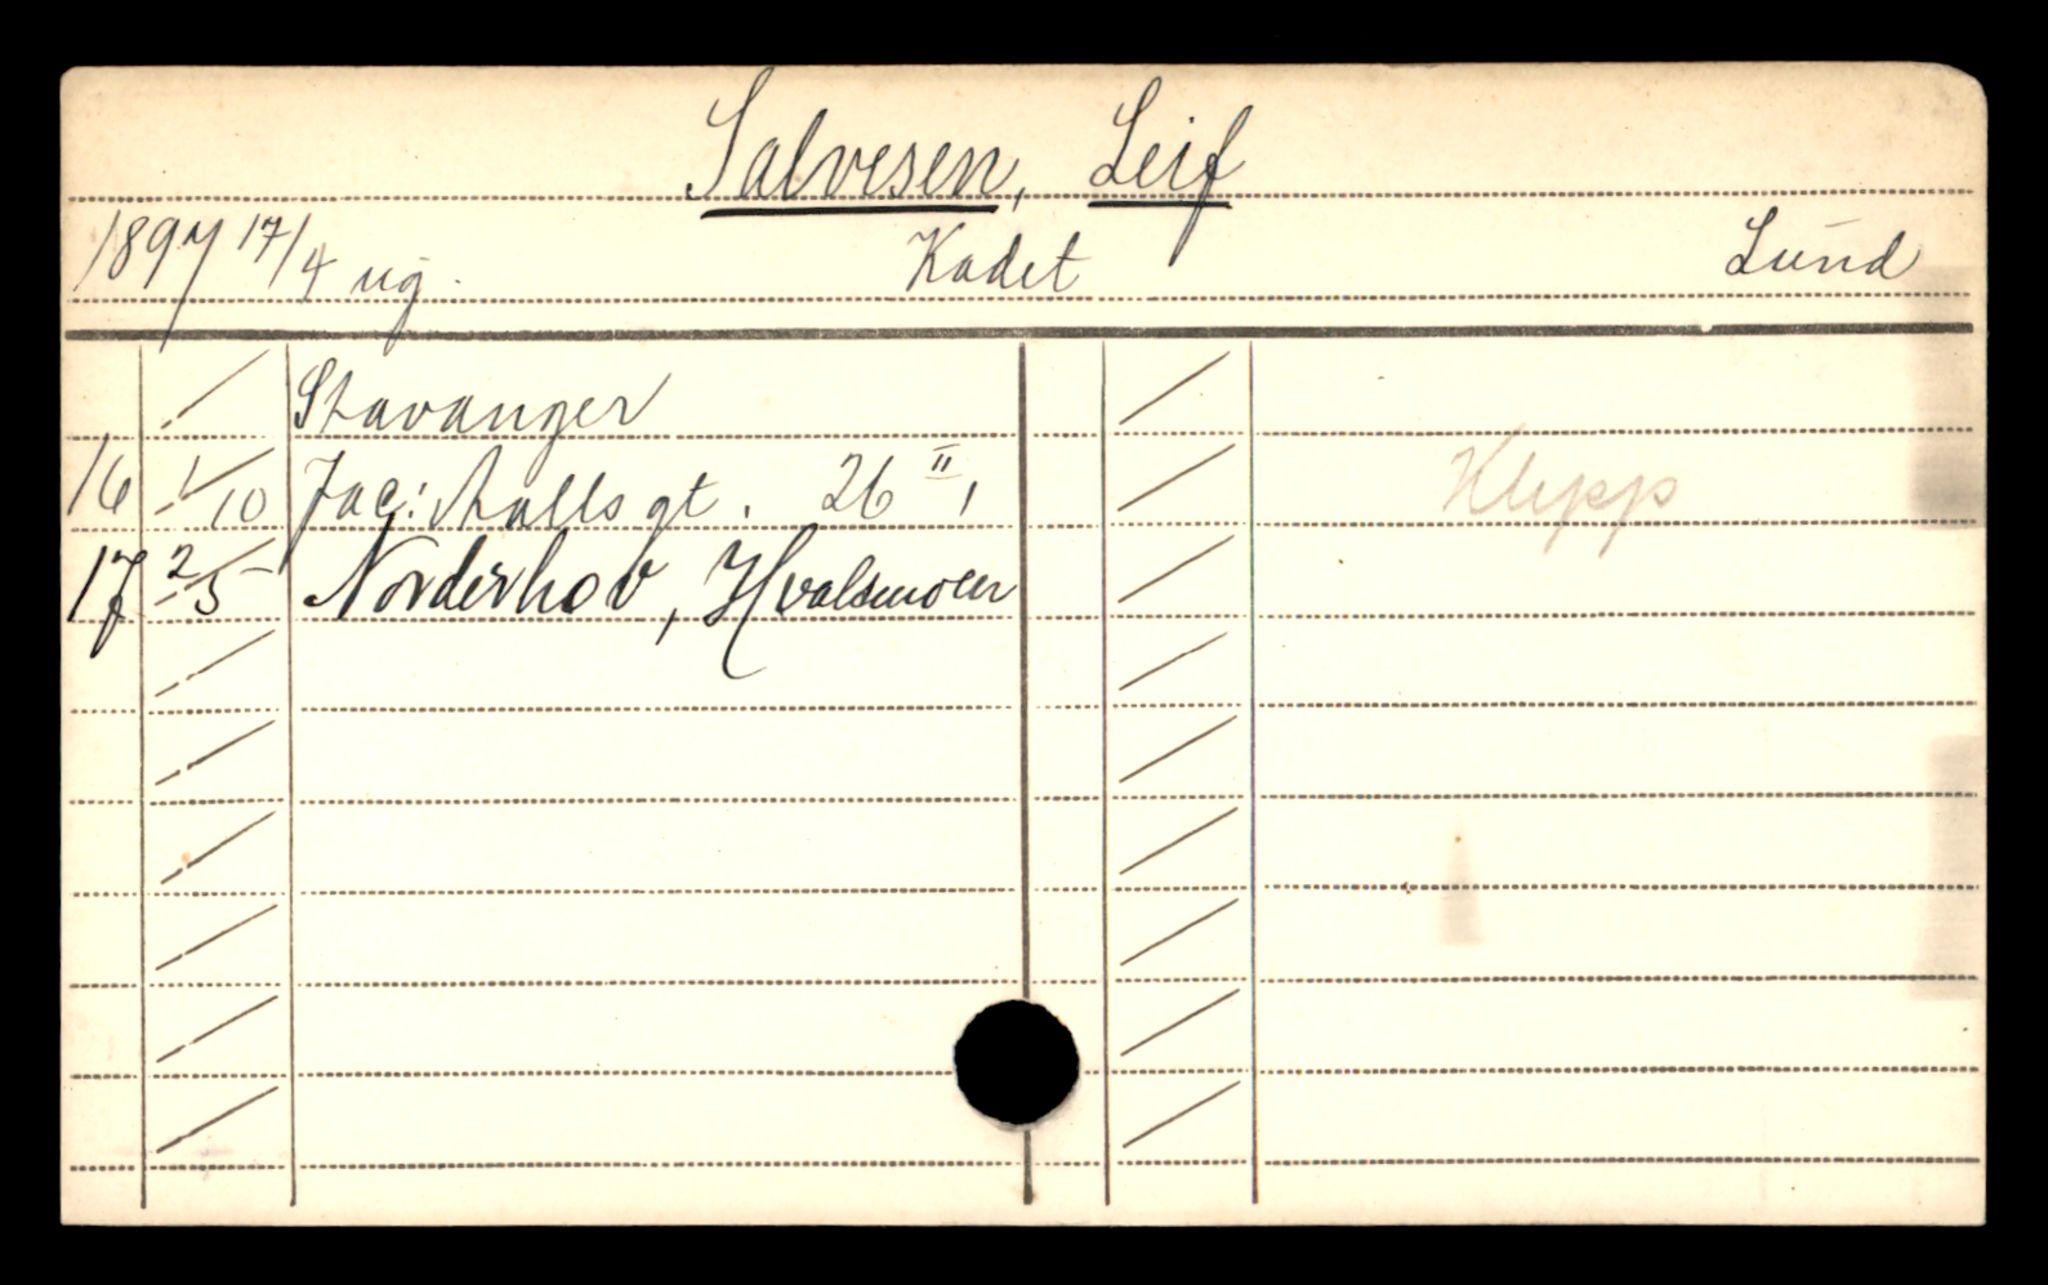 Salvesen, Leif
1897 17/4 ug. Kadet Lund
Stavanger
16 1/10 Jac: Aalls gt. 26 II,
Klepp
17 2/5 Norderhov, Hvalsmoen